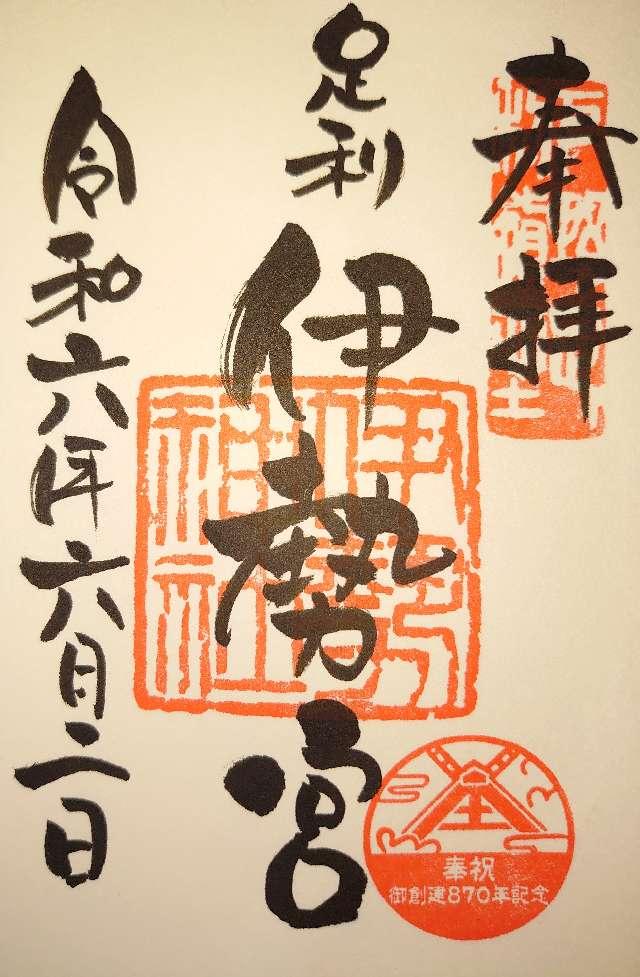 奉拝
足利
伊勢宮
伊勢神社
令和六年六月二日
奉祝
御創建870年記念